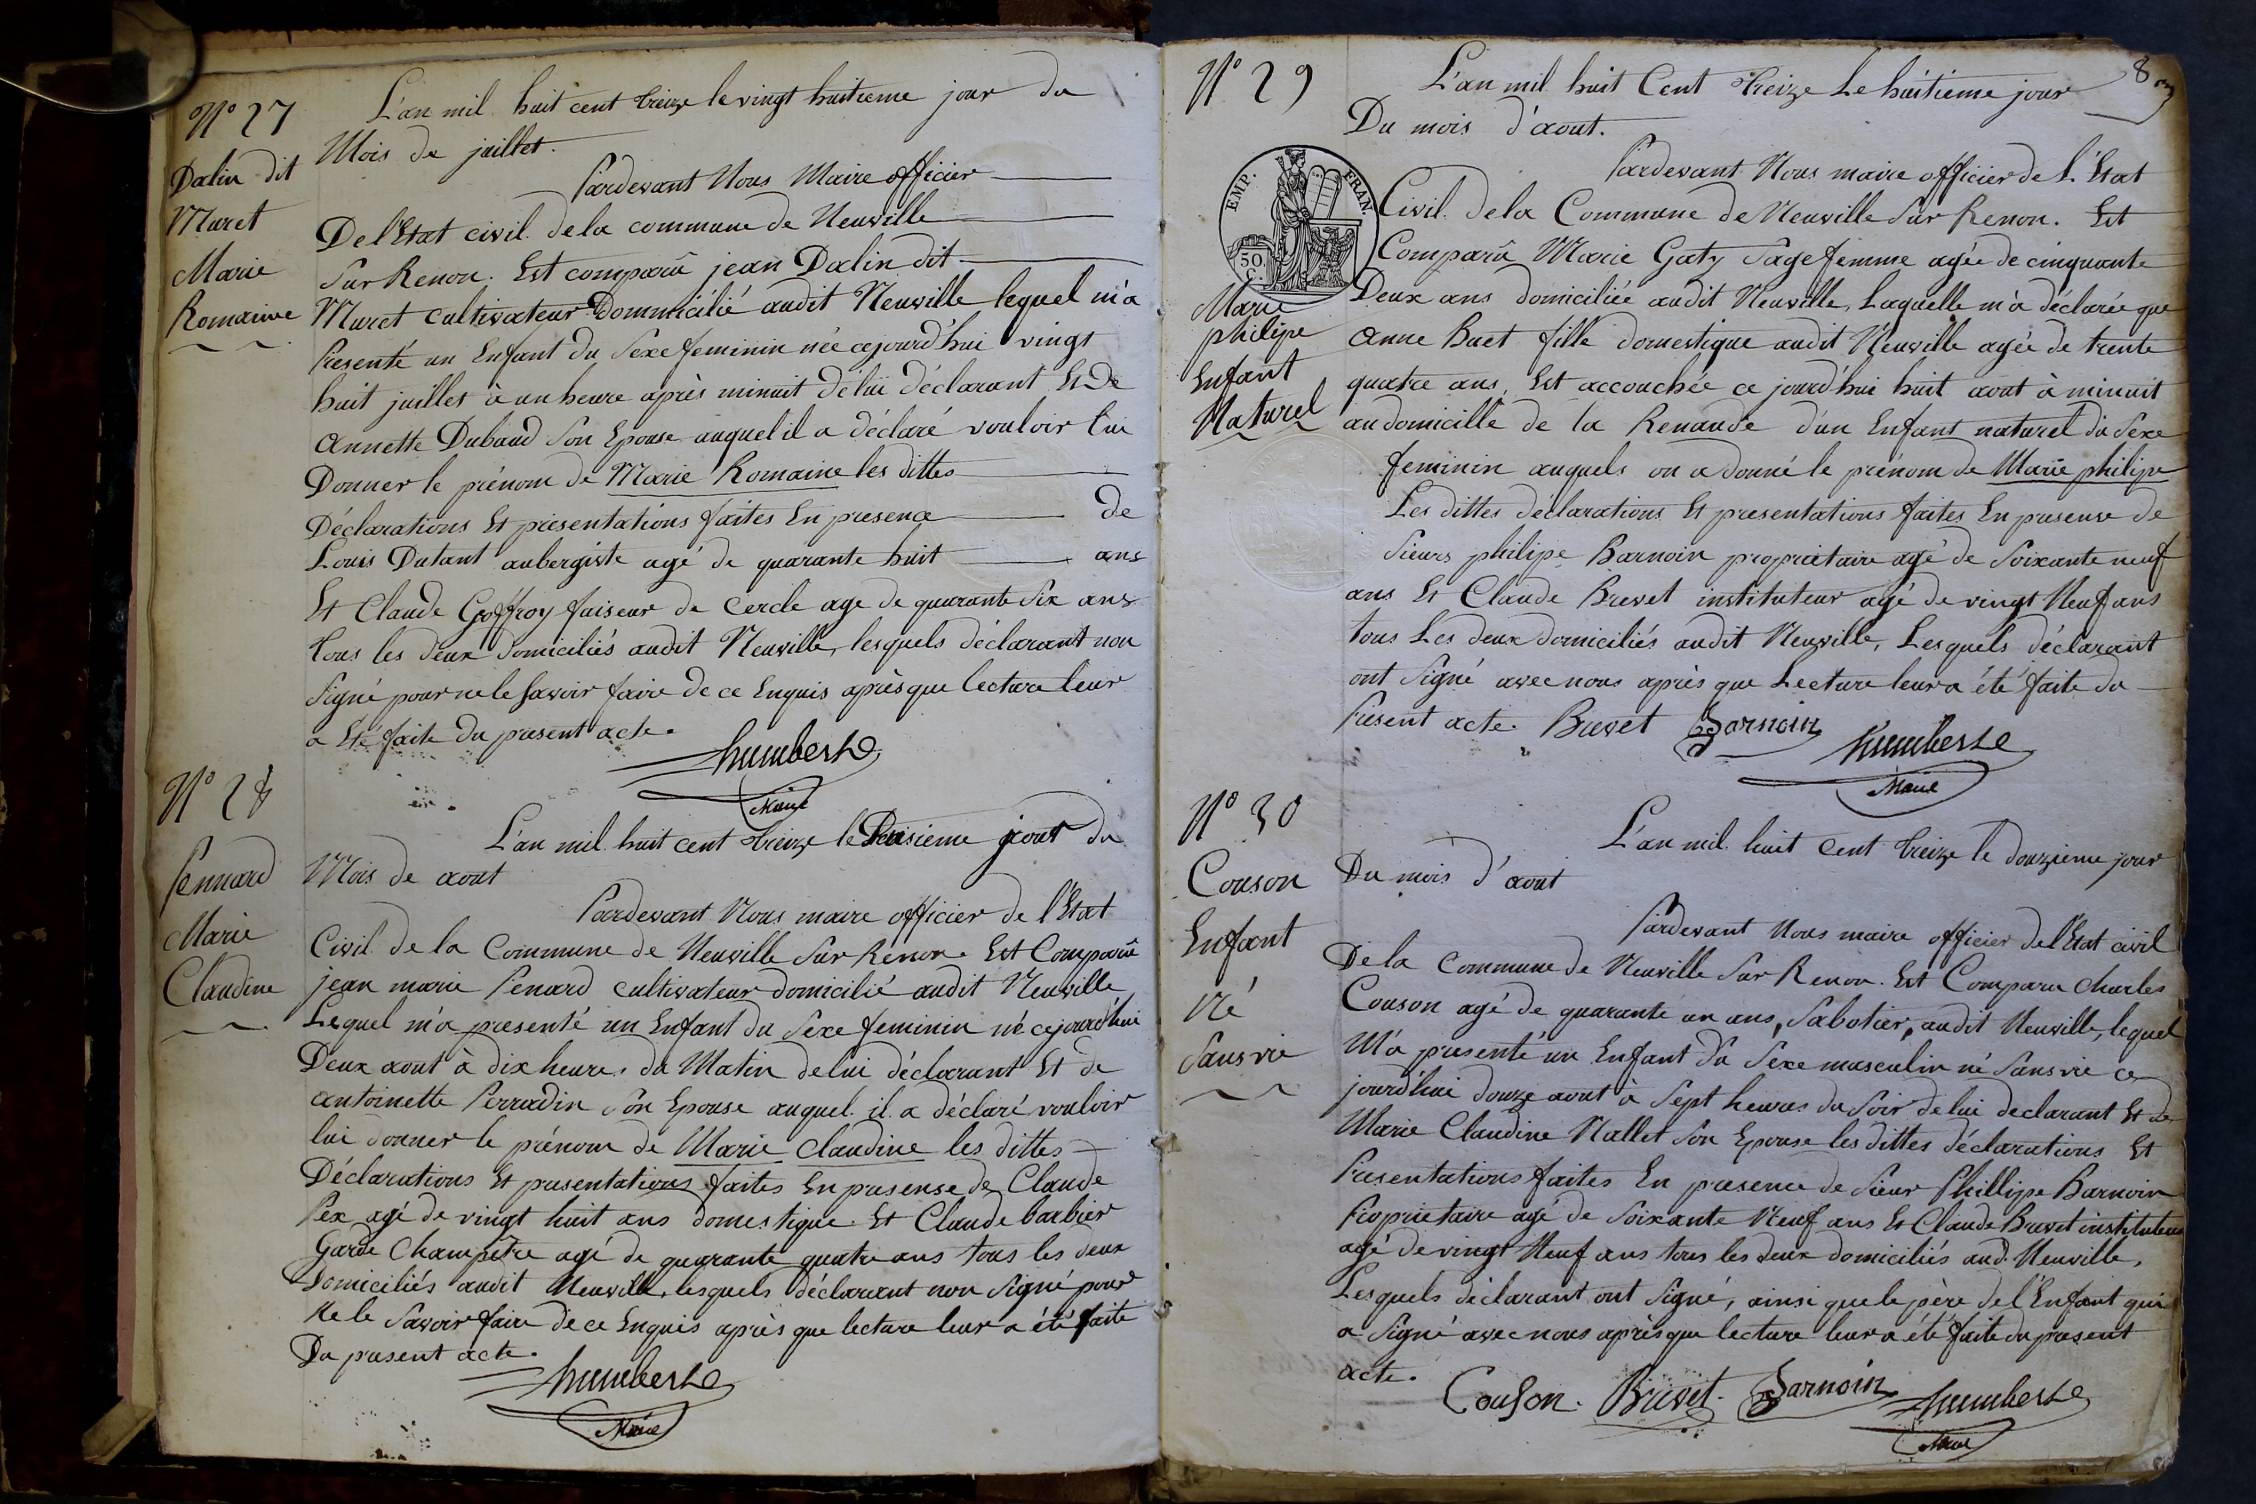 N° 27
Dalin dit
Muret
Marie
Romaine
L'an mil huit cent treize le vingt huitieme jour du
Mois de juillet.
Pardevant Nous Maire officier
De l'Etat civil dela commune de Neuville
Sur Renon. Est comparû jean Dalin dit
Muret cultivateur Dommicilié audit Neuville lequel m'a
Presenté un Enfant du Sexe feminin née cejourd'hui vingt
huit juillet à un heure après minuit de lui déclarant Et De
Annette Dubaud Son Epouse auquel il a déclaré vouloir lui
Donner le prénom de Marie Romaine les dittes
Déclarations Et présentations faites En presence de
Louis Dutant aubergiste agé de quarante huit ans
Et Claude Goffroy faiseur de Cercle age de quarante Six ans
tous les deux domiciliés audit Neuville, lesquels déclarant non
Signé pour ne le Savoir faire de ce Enquis après que lecture leur
a Eté faite du present acte.
humberte
Maire
N° 28
Pennard
Marie
Claudine
L'an mil huit cent treize le Deusieme jour du
Mois de aout
Pardevant Nous maire officier de l'Etat
Civil de la Commune de Neuville Sur Renon. Est Comparû
jean marie Penard cultivateur domicilié audit Neuville
Lequel m'a presenté un Enfant du Sexe feminin né cejourd'hui
Deux aout à dix heures du Matin de lui déclarant Et de
antoinette Perradin Son Epouse auquel il a déclaré vouloir
lui donner le prénom de Marie Claudine les dittes
Déclarations Et presentations faites En presense de Claude
Pex agé de vingt huit ans domestique Et Claude barbier
Garde Champêtre agé de quarante quatre ans tous les deux
Domiciliés audit Neuville, lesquels déclarant non Signé pour
Ne le Savoir faire de ce Enquis après que lecture leur a été faite
Du present acte.
humberte
Maire
8
N° 29
EMP. FRAN.
50
C.
Marie
philipe
Enfant
Naturel
L'an mil huit Cent treize Le huitieme jour
Du mois d'aout.
Pardevant Nous maire officier de l'Etat
Civil dela Commune de Neuville Sur Renon. Est
Comparû Marie Gaty Sage femme agée de cinquante
Deux ans domiciliée audit Neuville, Laquelle m'a déclarée que
Anne Buet fille domestique audit Neuville agée de trente
quatre ans, Est accouchée ce jourd'hui huit aout à minuit
au domicille de la Renaude d'un Enfant naturel du Sexe
feminin auquels on a donné le prénom de Marie philipe
Les dittes déclarations Et presentations faites En presense de
Sieurs philipe Barnoin proprietaire agé de Soixante neuf
ans Et Claude Brevet instituteur agé de vingt Neuf ans
tous Les deux domiciliés audit Neuville, Lesquels déclarant
ont Signé avec nous après que Lecture leur a été faite du
Present acte. Brevet Barnoin humberte
Maire
N° 30
Couson
Enfant
Né
Sans vie
L'an mil huit cent treize le douzieme jour
Du mois d'aout
Pardevant Nous maire officier de l'Etat civil
De la Commune de Neuville Sur Renon. Est Comparu Charles
Couson agé de quarante un ans, Sabotier, audit Neuville, lequel
M'a presenté un Enfant du Sexe masculin né Sans vie ce
jourd'hui douze aout à Sept heures du Soir de lui declarant Et de
Marie Claudine Nallet Son Epouse les dittes déclarations Et
Presentations faites En presence de Sieur Phillipe Barnoin
Proprietaire agé de Soixante Neuf ans Et Claude Brevet instituteur
agé de vingt Neuf ans tous les deux domiciliés aud. Neuville,
Lesquels déclarant ont Signé, ainsi que le père de l'Enfant qui
a Signé avec nous après que lecture leur a été faite du present
acte.
Couson. Brevet. Barnoin humberte
Maire